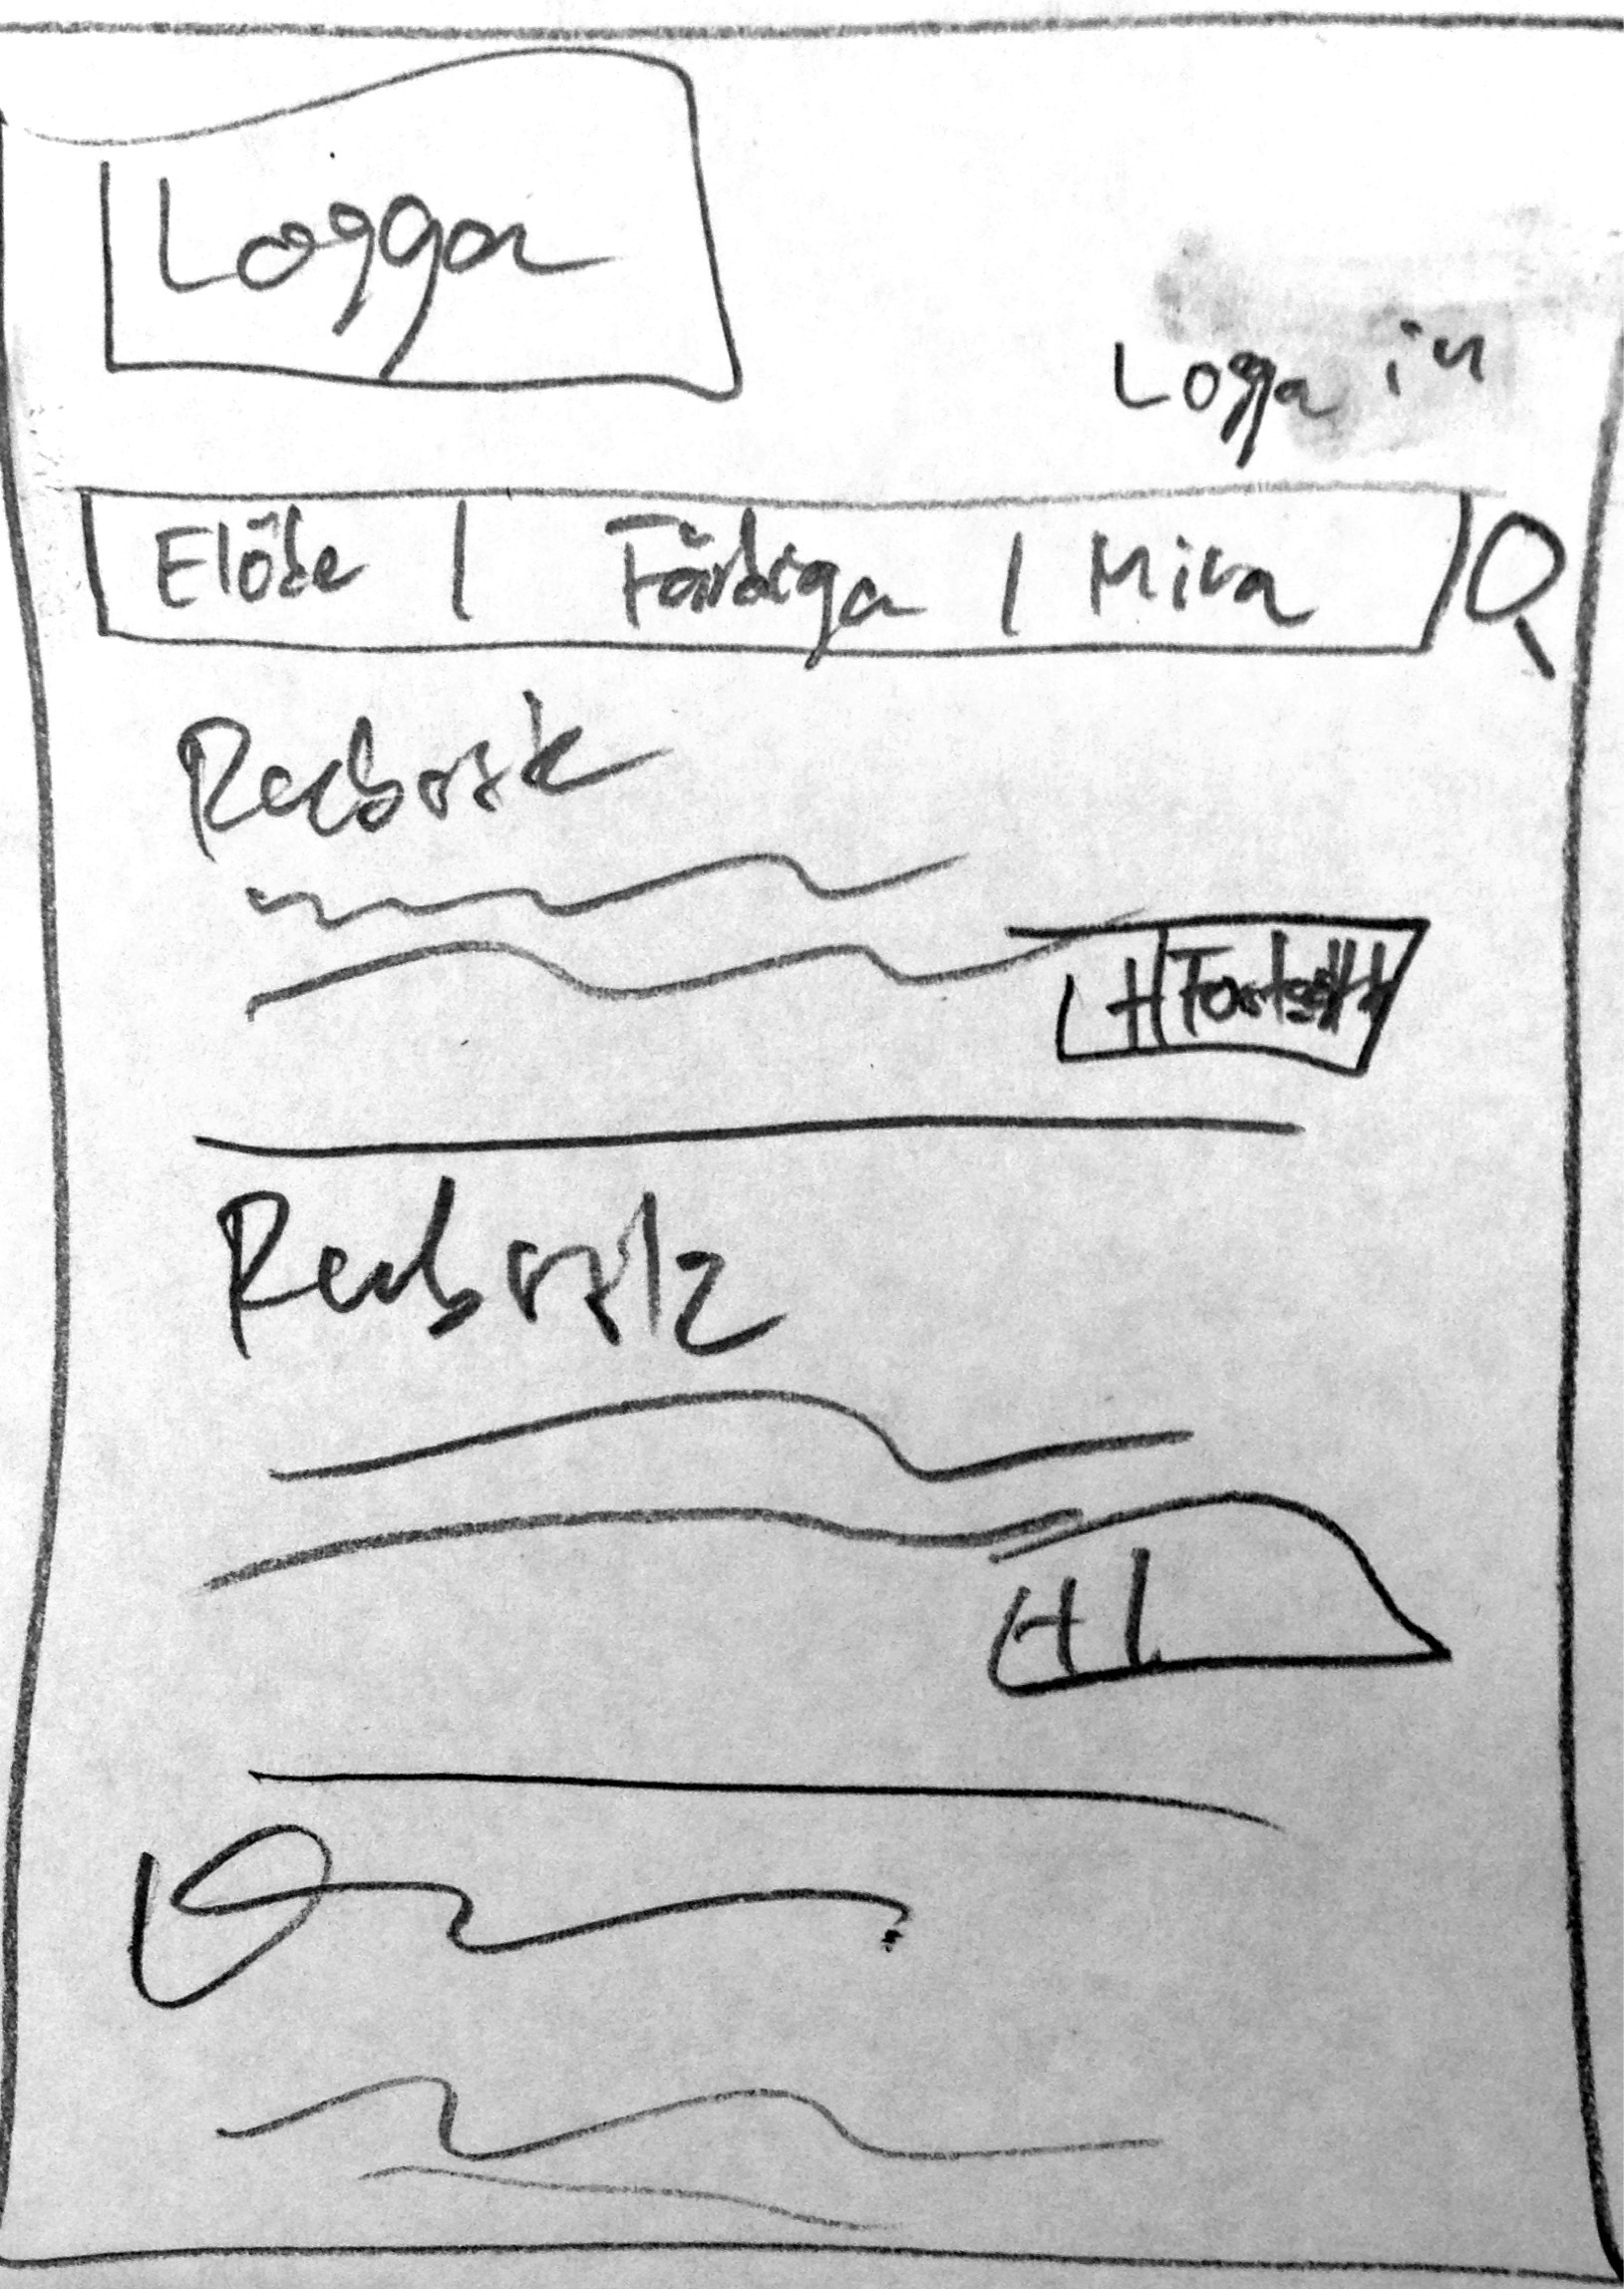 Logga
Logga in
Färdiga | Mina
Rubrik
+ Fortsätt
Rubrik
+